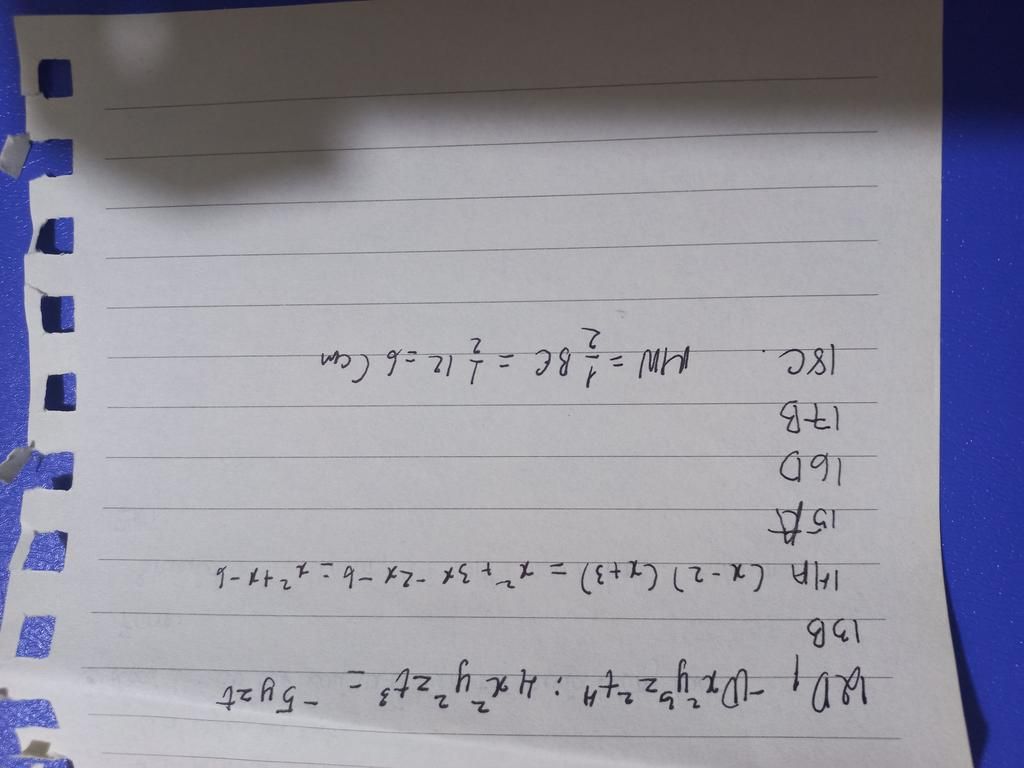 12D, -20x²y³z²t⁴ : 4x²y²zt³ = -5yzt
13B
14A (x-2)(x+3) = x²+3x-2x-6 = x²+x-6
15A
16D
17B
18C. MN = 1/2 BC = 1/2 12 = 6 (cm